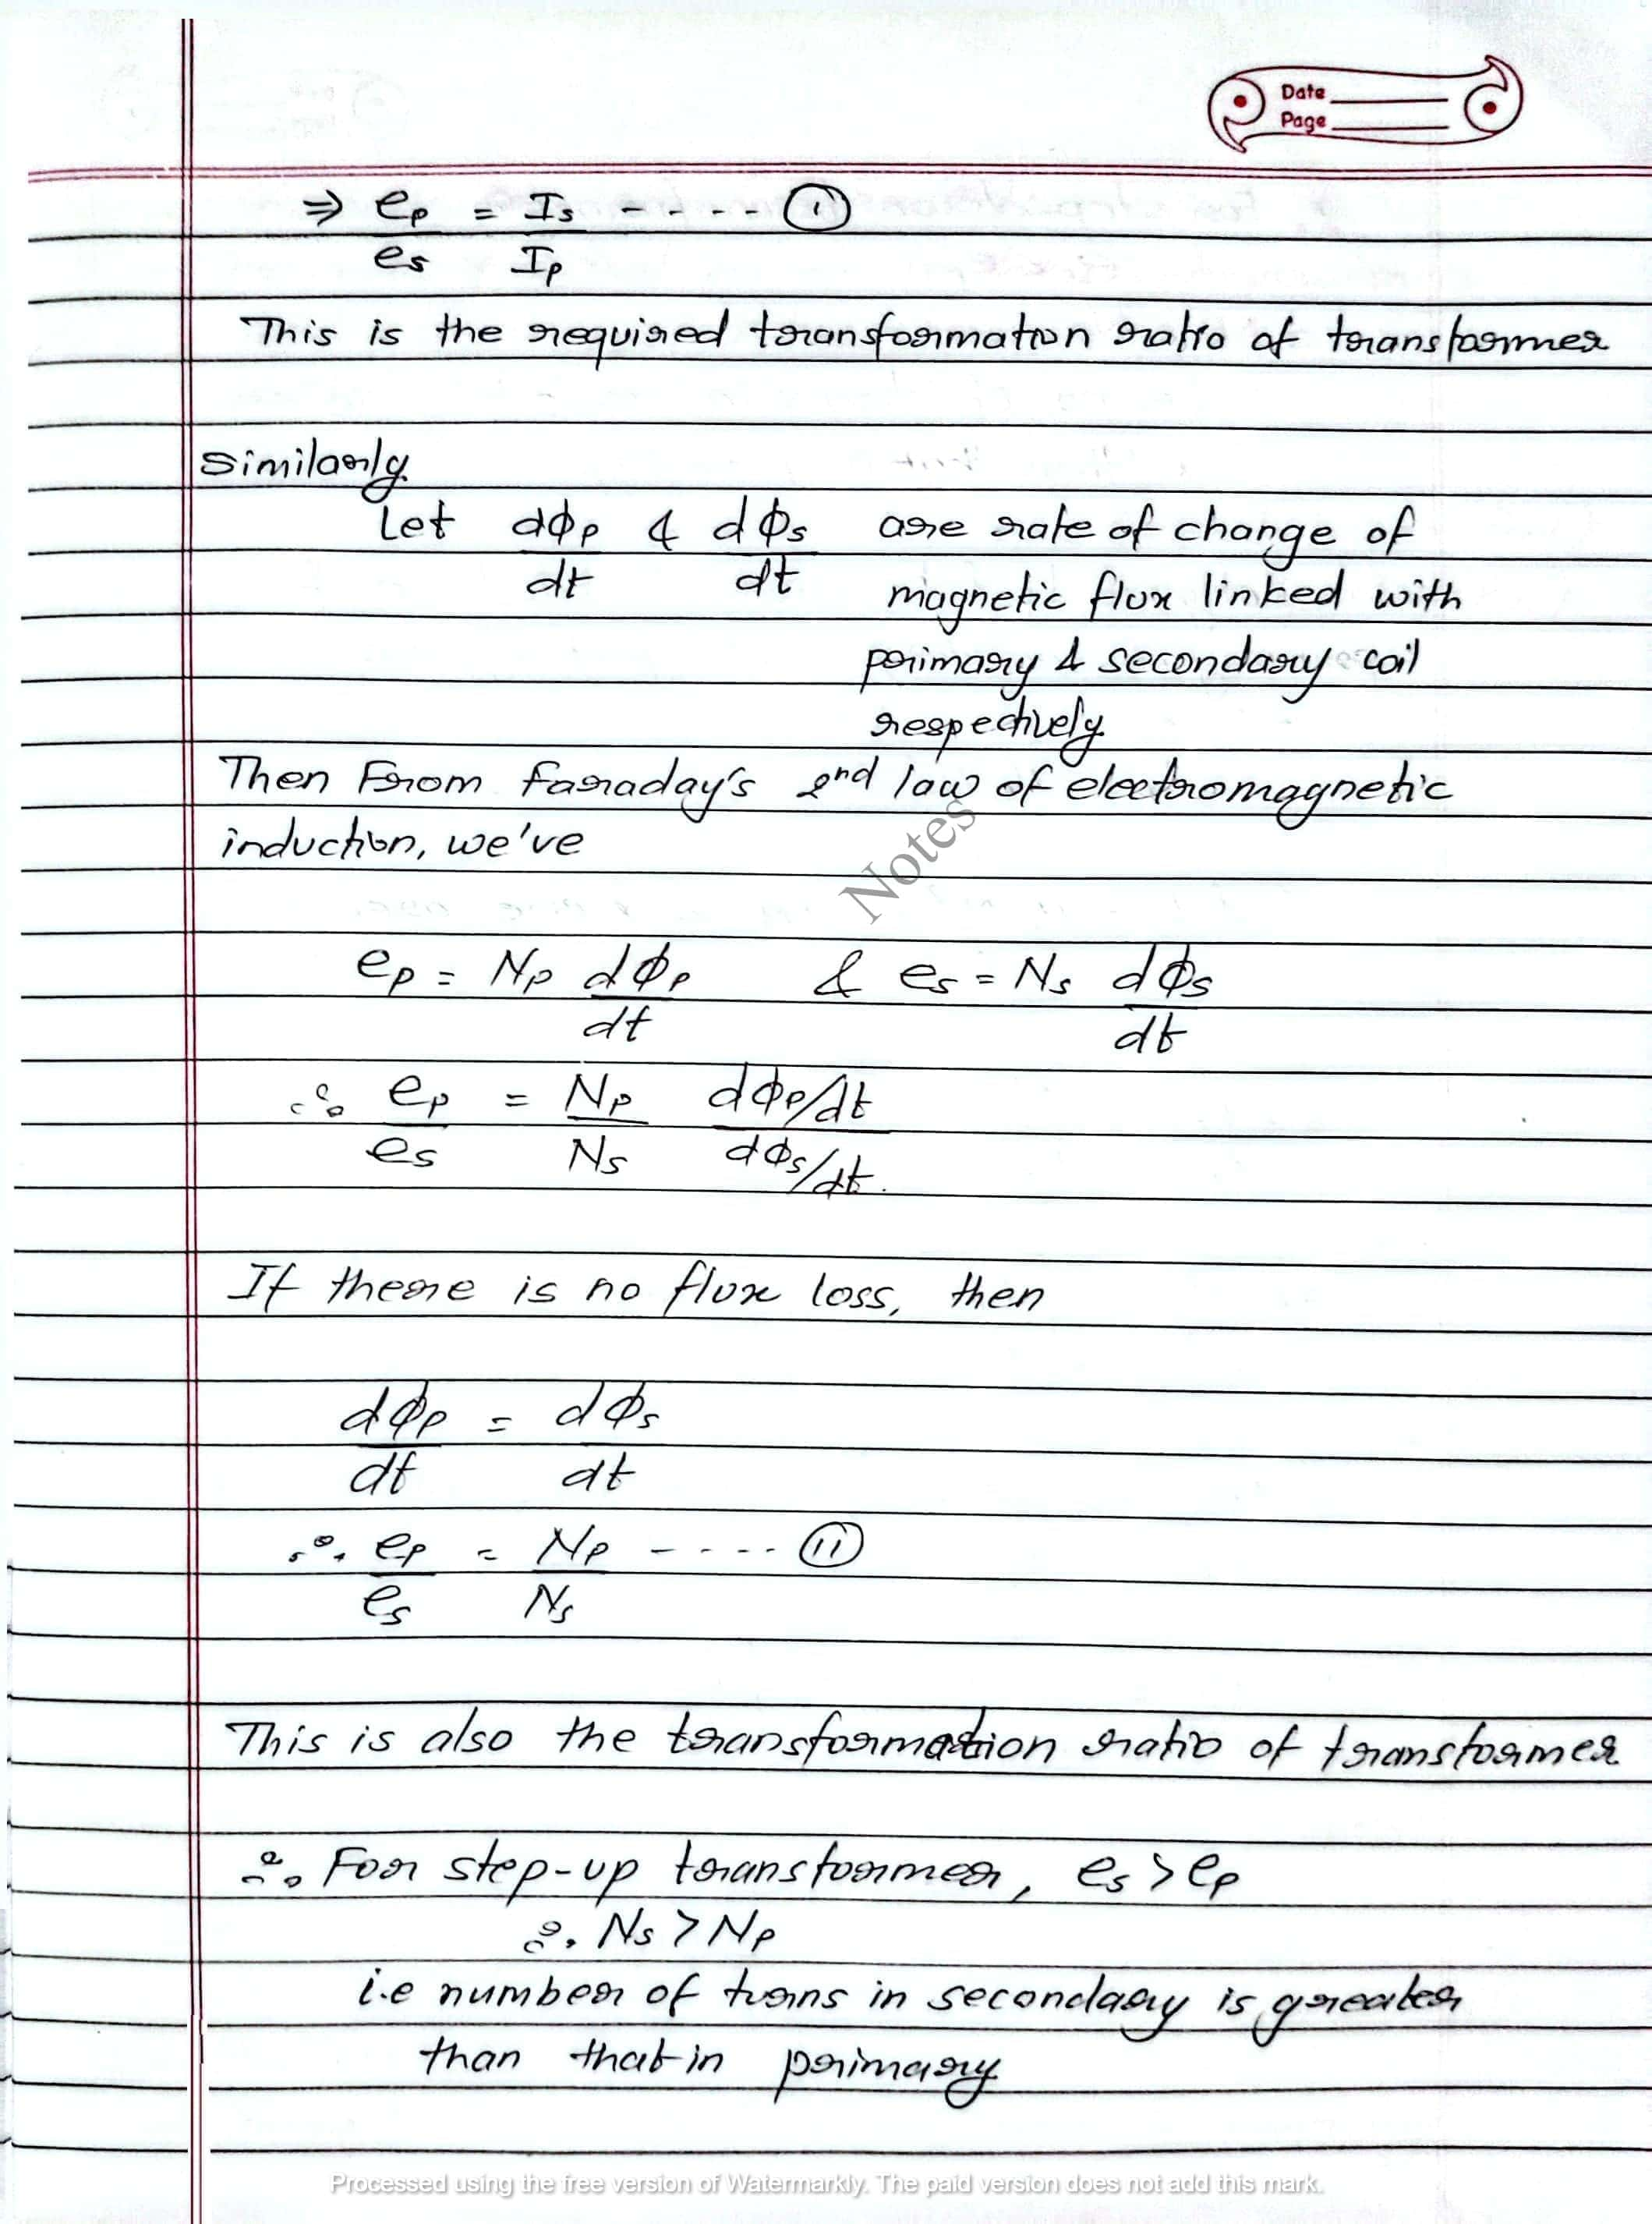 Date
Page
⇒ ep/es = Is/Ip ----- (i)
This is the required transformation ratio of transformer
Similarly
Let dΦp/dt & dΦs/dt are rate of change of
magnetic flux linked with
primary & secondary coil
respectively.
Then From Faraday's 2nd law of electromagnetic
induction, we've
Notes
ep = Np dΦp/dt & es = Ns dΦs/dt
∴ ep/es = Np/Ns (dΦp/dt)/(dΦs/dt).
If there is no flux loss, then
dΦp/dt = dΦs/dt
∴ ep/es = Np/Ns ----- (ii)
This is also the transformation ratio of transformer
∴ For step-up transformer, es > ep
∴ Ns > Np
i.e number of turns in secondary is greater
than that in primary
Processed using the free version of Watermarkly. The paid version does not add this mark.